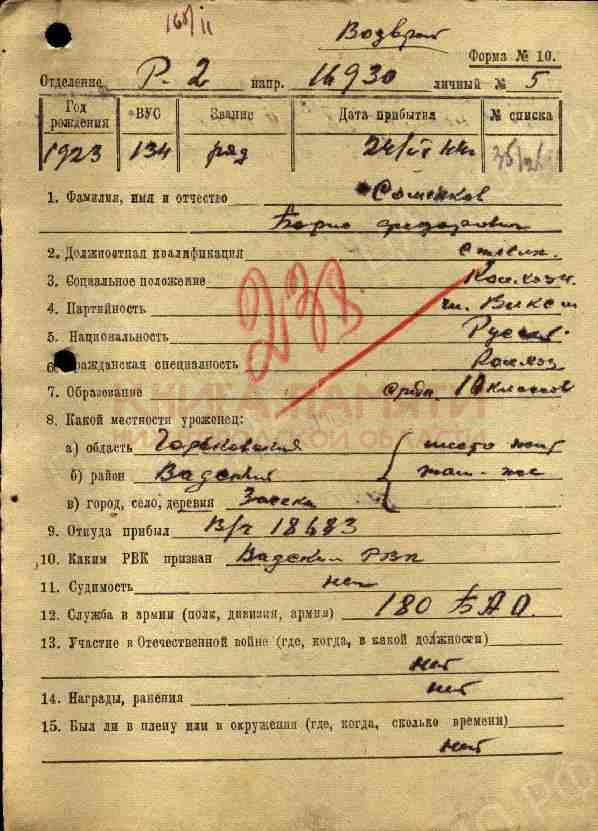 168/11
Возврат
Форма № 10.
Отделение Р-2 напр. 14930 личный № 5
Год рождения ВУС Звание Дата прибытия № списка
1923 134 ряд 24/ 44г
1. Фамилия, имя и отчество Соменков
Борис Федорович
2. Должностная квалификация
3. Социальное положение Колхозн.
238
4. Партийность чл. ВЛКСМ
5. Национальность Русский
6. Гражданская специалность Колхоз
7. Образование средн. 10 классов
КНИГА ПАМЯТИ
НИЖЕГОРОДСКОЙ ОБЛАСТИ
8. Какой местности уроженец:
а) область Горьковская место жит
б) район Вадский там-же
в) город, село, деревня Засека
9. Откуда прибыл В/ч 18483
10. Каким РВК призван Вадским РВК
11. Судимость нет
12. Служба в армии (полк, дивизия, армия) 180 БАО.
13. Участие в Отечественной войне (где, когда, в какой должности)
нет
14. Награды, ранения нет
15. Был ли в плену или в окружении (где, когда, сколько времени)
нет